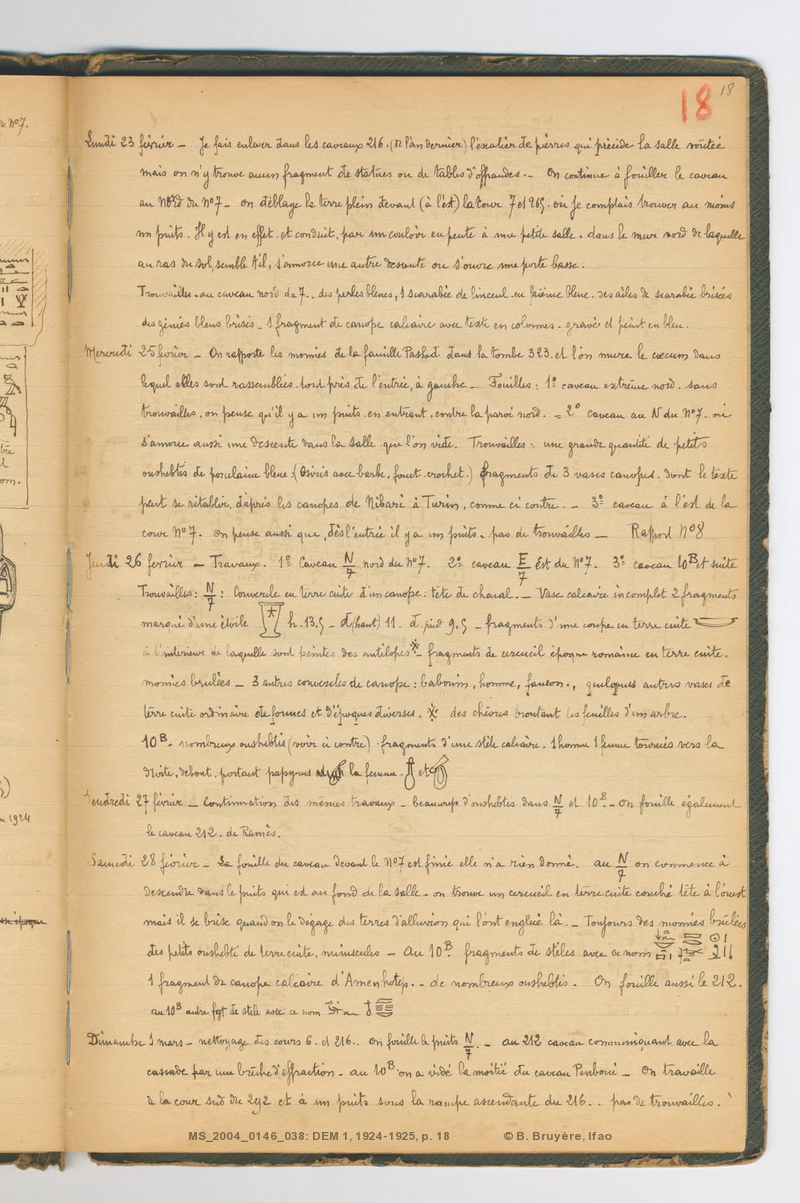 18 18
re N°7.
Lundi 23 février — Je fais enlever dans les caveaux 216. (de l'an dernier) l'escalier de pierres qui précède la salle voûtée
mais on n'y trouve aucun fragment de statues ou de tables d'offrandes. — On continue à fouiller le caveau
au Nord du n°7 — on déblage le terre plein devant (à l'est) la cour 7 et 265. où je comptais trouver au moins
un puits. Il y est en effet et conduit, par un couloir en pente à une petite salle. dans le mur nord de laquelle
au ras du sol, semble t'il, s'amorce une autre descente ou s'ouvre une porte basse.
Trouvailles. au caveau nord du 7. des perles bleues, 1 scarabée de linceul en faïence bleue. des ailes de scarabée brisées
des génies bleus brisés — 1 fragment de canope calcaire avec texte en colonnes. gravés et peint en bleu.
Mercredi 25 février — On rapporte les momies de la famille Pashed dans la tombe 323. et l'on mure le cœcum dans
lequel elles sont rassemblées. tout près de l'entrée, à gauche — Fouilles : 1° caveau extrême nord. sans
trouvailles. on pense qu'il y a un puits en entrant, contre la paroi nord. = 2° caveau au N du N°7. où
s'amorce aussi une descente dans la salle que l'on vide. Trouvailles : une grande quantité de petits
oushebtis de porcelaine bleue (Osiris avec barbe, fouet crochet.) fragments de 3 vases canopes. dont le texte
peut se rétablir, d'après les canopes de Nibaré à Turin, comme ci contre. — 3° caveau à l'est de la
cour N°7. On pense aussi que, dès l'entrée il y a un puits. pas de trouvailles — Rapport N°8
Jeudi 26 fevrier — Travaux. 1° Caveau N/7 nord du N°7. 2° caveau E/7 Est du N°7. 3° caveau 10B et suite
Trouvailles : N/7 : Couvercle en terre cuite d'un canope : tête de chacal. — Vase calcaire incomplet 2 fragments
marqué d'une étoile h. 13,5 — d (haut) 11. d. pied 9,5 — fragments d'une coupe en terre cuite
à l'intérieur de laquelle sont peintes des antilopes — fragments de cercueil époque romaine en terre cuite.
momies brulées — 3 autres couvercles de canope : babouin, homme, faucon., quelques autres vases de
terre cuite ordinaire de formes et d'époques diverses. des chèvres broutant les feuilles d'un arbre.
10B. nombreux oushebtis (voir ci contre) fragments d'une stèle calcaire. 1 homme 1 femme tournés vers la
droite, debout. portant papyrus la femme. et
Vendredi 27 février — Continuation des mêmes travaux — beaucoup d'oushebtis dans N/7 et 10B — On fouille également
le caveau 212. de Ramès.
Samedi 28 février — La fouille du caveau devant le N°7 est finie elle n'a rien donné. au N/7 on commence à
descendre dans le puits qui est au fond de la salle — on trouve un cercueil en terre cuite couché tête à l'ouest
mais il se brise quand on le dégage des terres d'alluvion qui l'ont englué là. — Toujours des momies brûlées
des petits oushebti de terre cuite, minuscules — Au 10B. fragments de stèles avec ce nom
1 fragment de canope calcaire d'Amenhotep. — de nombreux oushebtis. On fouille aussi le 212.
au 10B autre fgt de stèle avec ce nom
Dimanche 1 mars — nettoyage des cours 6. et 216.. On fouille le puits N/7. — au 212 caveau communiquant avec la
cascade par une brêche d'effraction — au 10B on a vidé la moitié du caveau Penboui — On travaille
à la cour sud du 292 et à un puits sous la rampe ascendante du 216. . pas de trouvailles.
MS_2004_0146_038: DEM 1, 1924-1925, p. 18 © B. Bruyère, Ifao